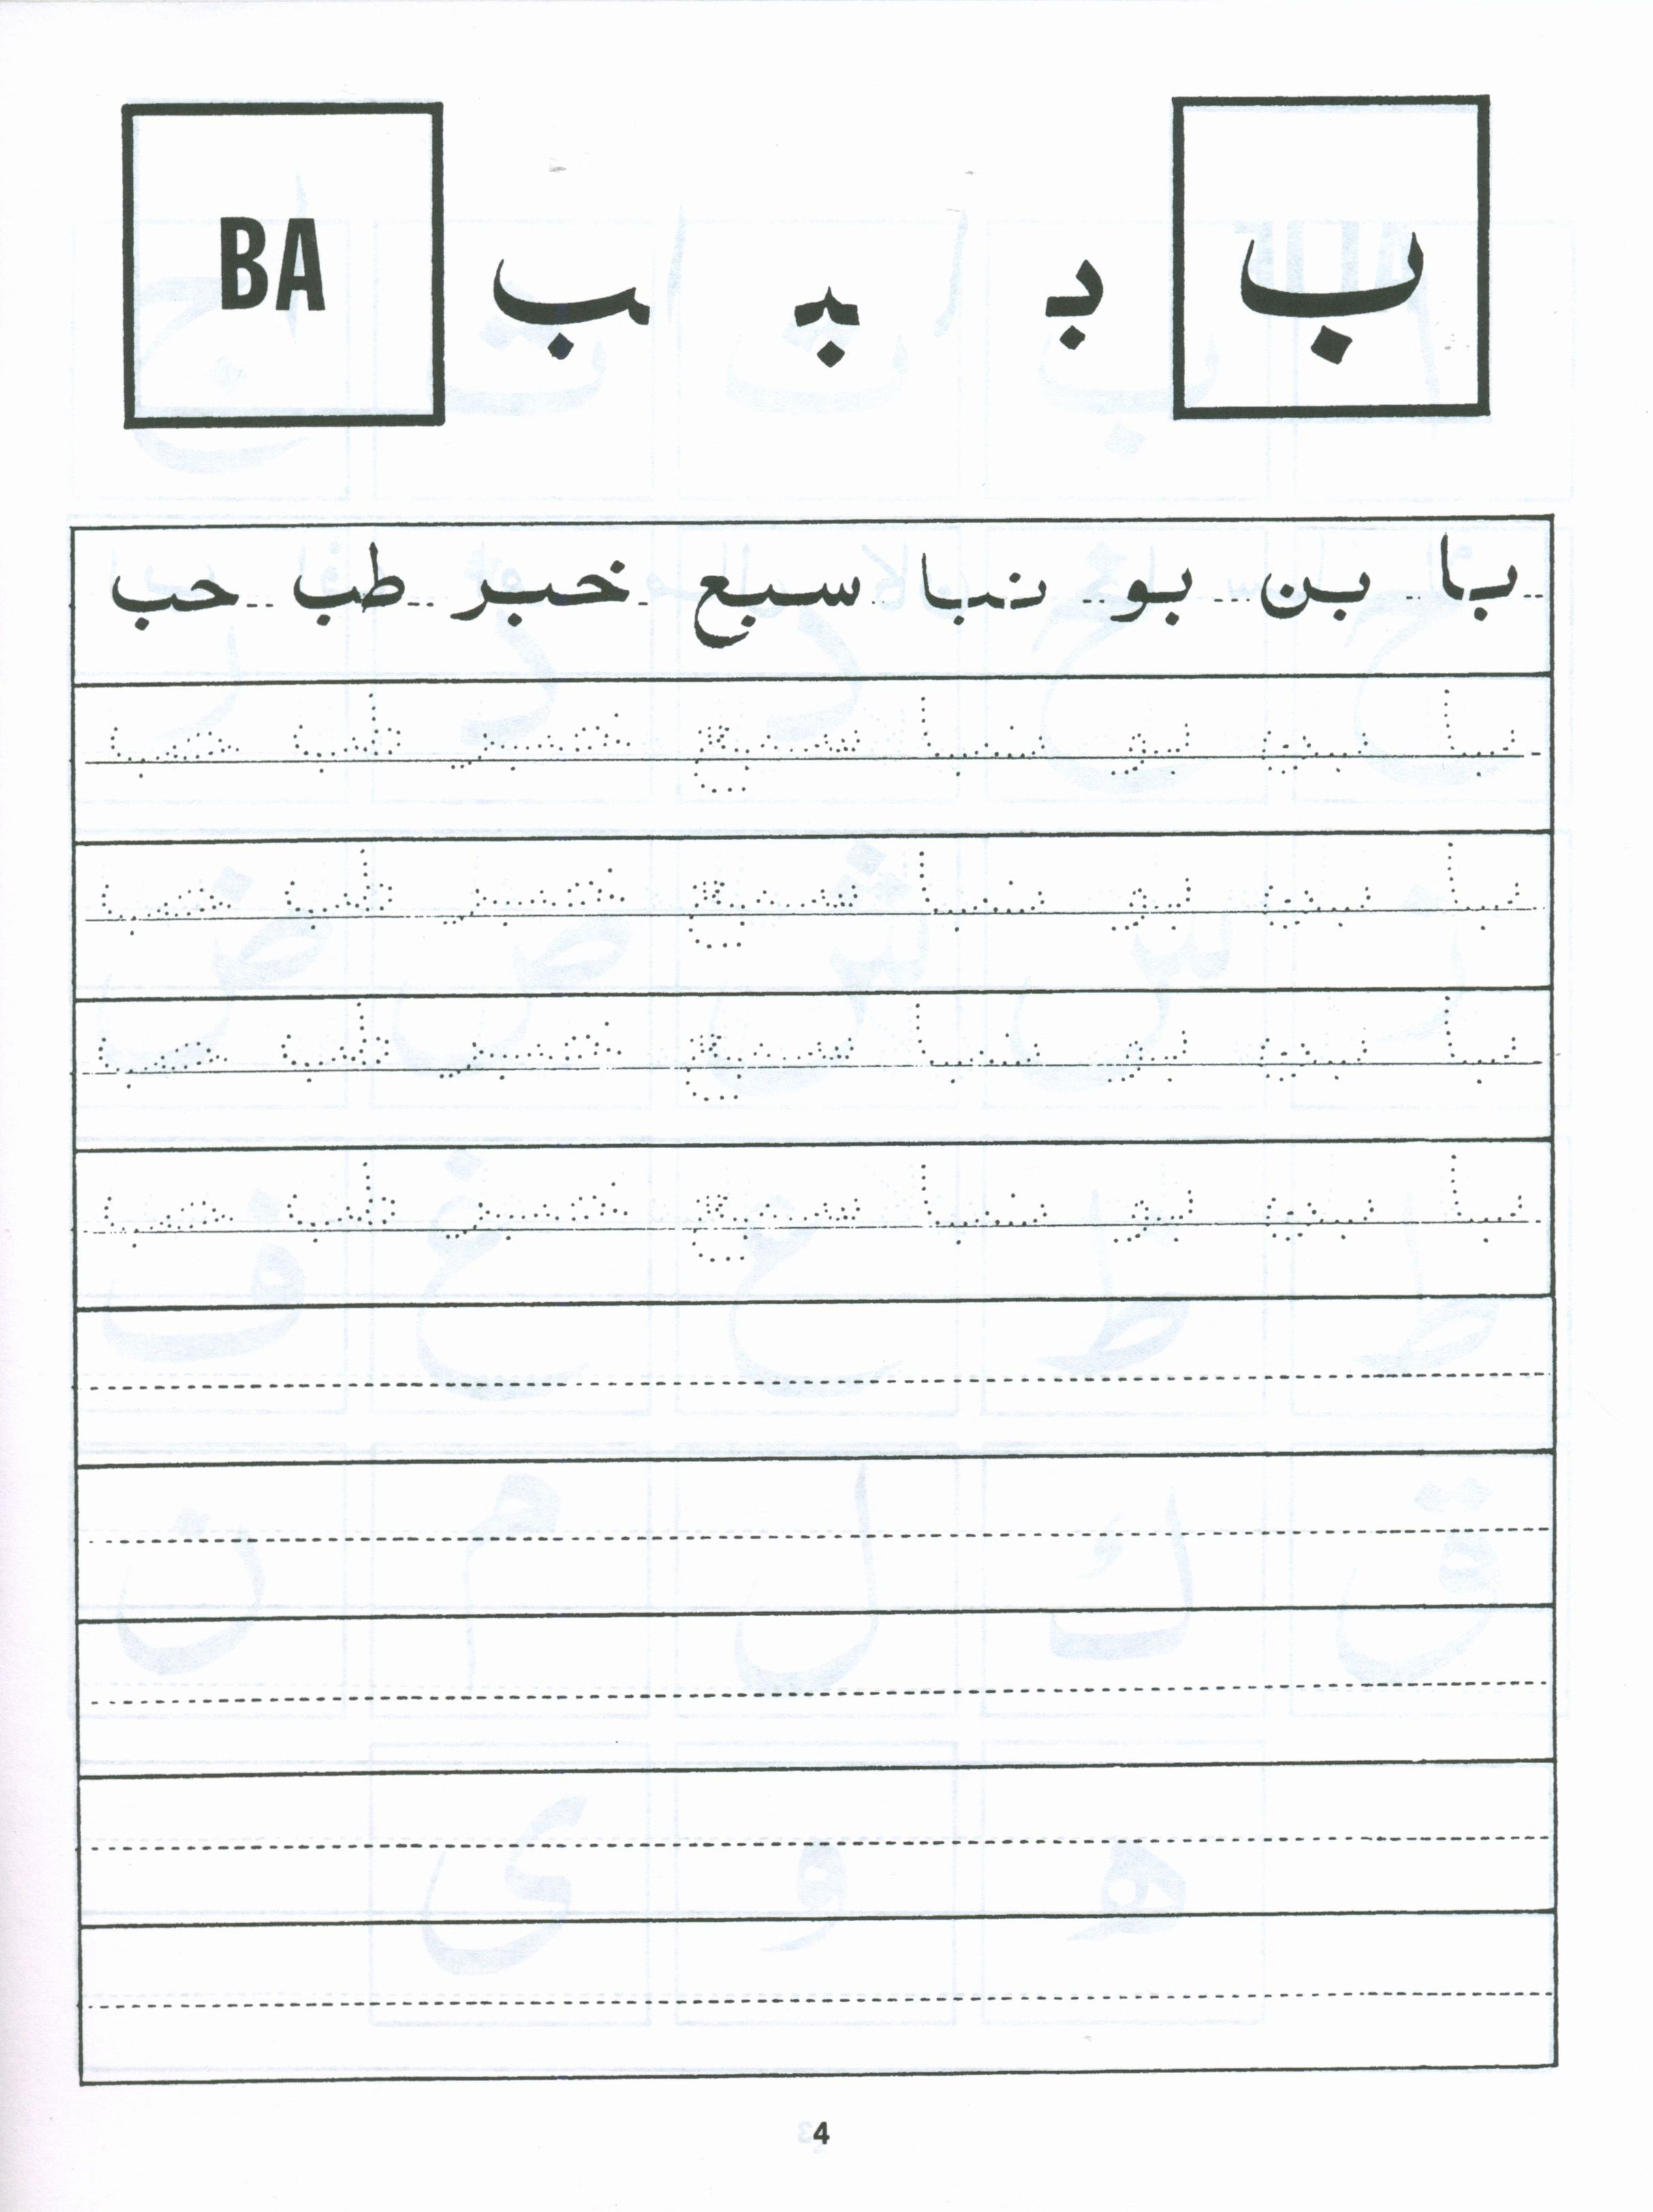 ب بـ ـبـ ـب BA
با بن بو نبا سبع خبر طب حب
با بن بو نبا سبع خبر طب حب
با بن بو نبا سبع خبر طب حب
با بن بو نبا سبع خبر طب حب
با بن بو نبا سبع خبر طب حب
4